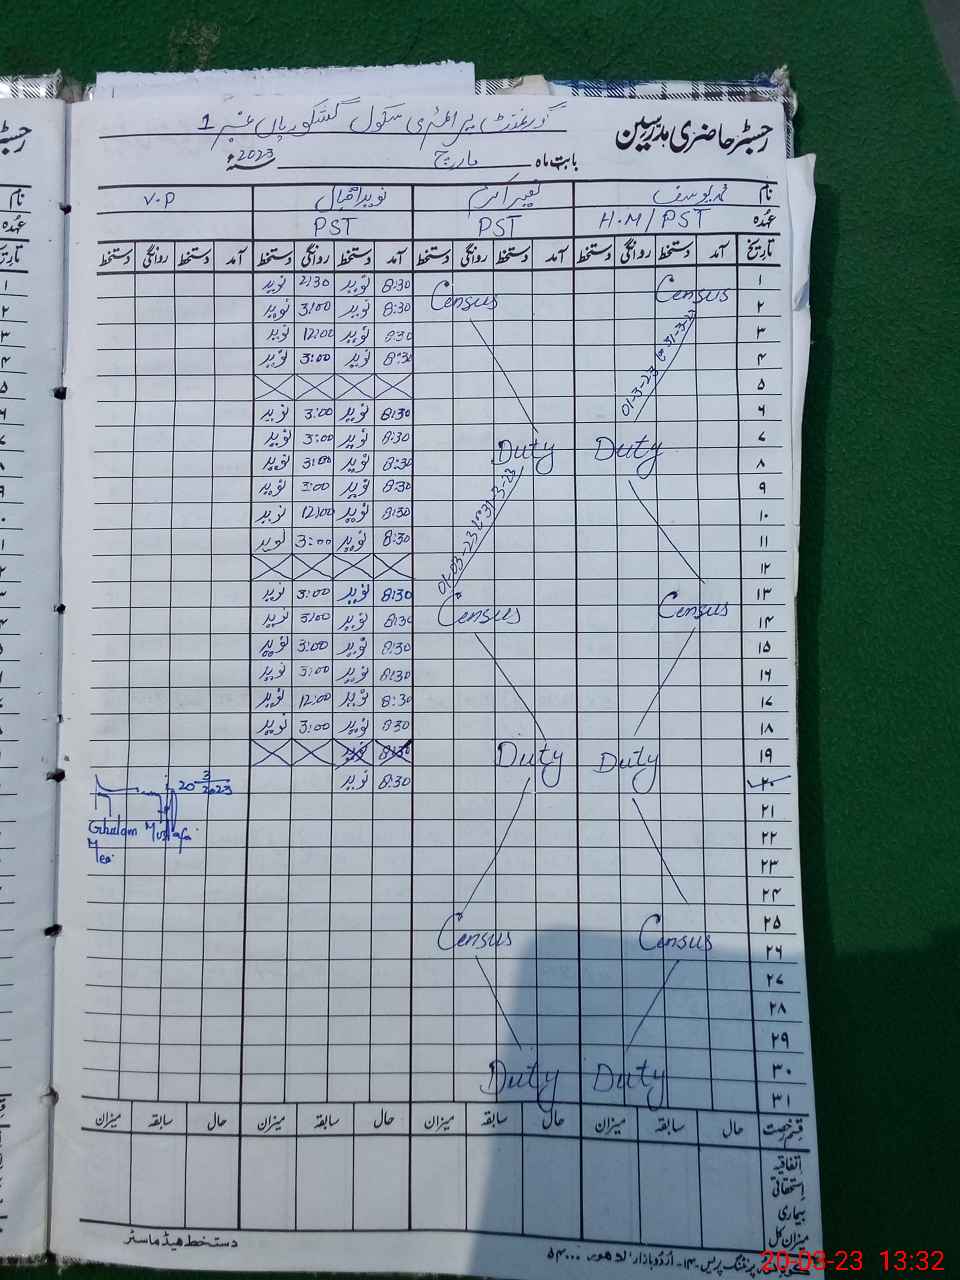 رجسٹر حاضری مدرسین گورنمنٹ پرائمری سکول نمبر 1
بابت ماہ مارچ سنہ 2023ء
نام محمد یوسف نوید اقبال V.P
عہدہ H.M/PST PST PST
تاریخ آمد دستخط روانگی دستخط آمد دستخط روانگی دستخط آمد دستخط روانگی دستخط آمد دستخط روانگی دستخط
۱ Census Census 8:30 نوید 2:30 نوید
۲ 8:30 نوید 3:00 نوید
۳ 01-3-23 تا 31-3-23 8:30 نوید 12:00 نوید
۴ 8:30 نوید 3:00 نوید
۵
۶ 8:30 نوید 3:00 نوید
۷ Duty Duty 8:30 نوید 3:00 نوید
۸ 8:30 نوید 3:00 نوید
۹ 01-03-23 تا 31-3-23 8:30 نوید 3:00 نوید
۱۰ 8:30 نوید 12:00 نوید
۱۱ 8:30 نوید 3:00 نوید
۱۲
۱۳ Census Census 8:30 نوید 3:00 نوید
۱۴ 8:30 نوید 3:00 نوید
۱۵ 8:30 نوید 3:00 نوید
۱۶ 8:30 نوید 3:00 نوید
۱۷ 8:30 نوید 12:00 نوید
۱۸ 8:30 نوید 3:00 نوید
۱۹ Duty Duty 8:30 نوید
۲۰ 8:30 نوید 20-3-2023
۲۱
Ghulam Mustafa
۲۲
Mea
۲۳
۲۴
۲۵ Census Census
۲۶
۲۷
۲۸
۲۹
۳۰ Duty Duty
۳۱
قسم رخصت حال سابقہ میزان حال سابقہ میزان حال سابقہ میزان حال سابقہ میزان
اتفاقیہ
استحقاقی
بیماری
میزان کل
دستخط ہیڈ ماسٹر
پرنٹنگ پریس ۱۴- اردو بازار لاہور
20-03-23 13:32